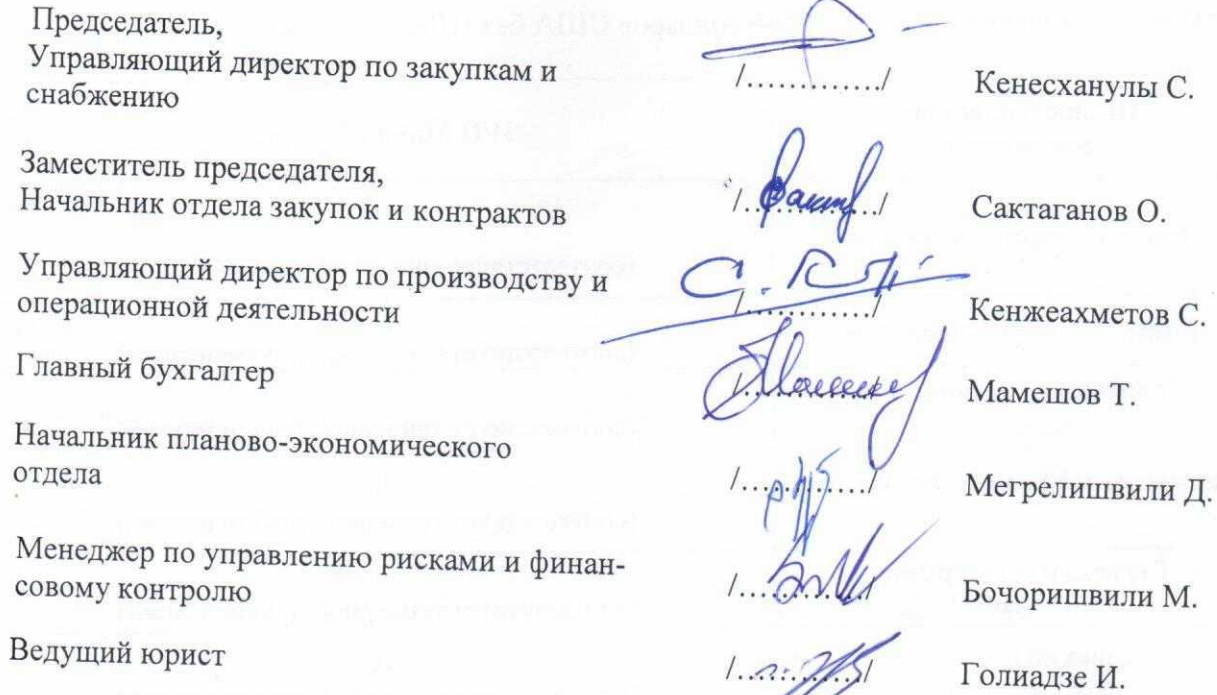 Председатель,
Управляющий директор по закупкам и
снабжению
/............./ Кенесханулы С.
Заместитель председателя,
Начальник отдела закупок и контрактов
/............./ Сактаганов О.
Управляющий директор по производству и
операционной деятельности
/............./ Кенжеахметов С.
Главный бухгалтер
/............./ Мамешов Т.
Начальник планово-экономического
отдела
/............./ Мегрелишвили Д.
Менеджер по управлению рисками и финан-
совому контролю
/............./ Бочоришвили М.
Ведущий юрист
/............./ Голиадзе И.